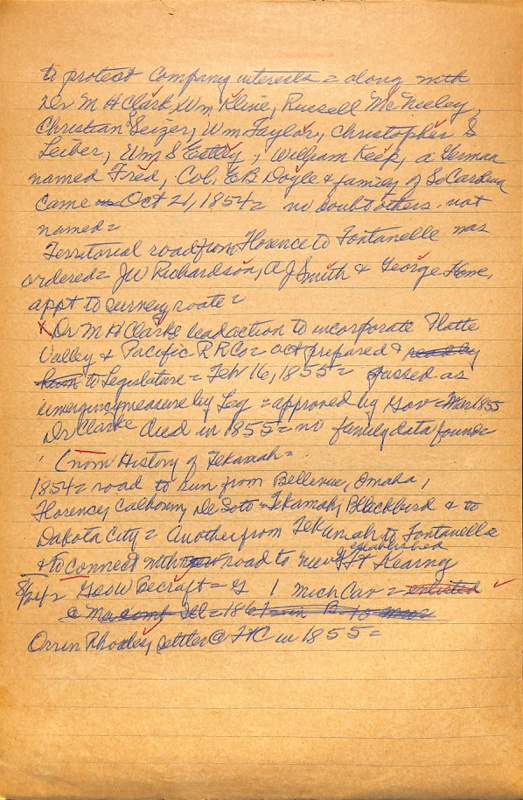 to protect Company interests = along with
Dr M H Clark, Wm Kline, Russell McNeeley,
Christian Seizer, Wm Taylor, Christopher S
Leiber, Wm S Estley, William Keep, a German
named Fred, Col. E B Doyle & family of So Carolina
Came Oct 21, 1854 = no doubt others. not
named =
Territorial road from Florence to Fontanelle was
ordered = JW Richardson, A J Smith & George Home,
appt to survey route =
x Dr M H Clarke lead action to incorporate Platte
Valley & Pacific R R Co = act prepared & read by
to Legislature = Feb 16, 1855 = passed as
emergency measure by Leg = approved by Gov = Mar 1855
Dr Clarke died in 1855 = no family data found
(from History of Tekamah =
1854 = road to run from Bellevue, Omaha,
Florence, Calhoun, De Soto = Tekamah, Blackbird & to
Dakota City = Another from Tekamah to Fontanelle
& to Connect with road to new established Ft Kearney
Geo W Becraft = G 1 Mich Cav = enlisted
@ Macomb Ill = 186
Orrin Rhodes, settler @ FtC in 1855 =